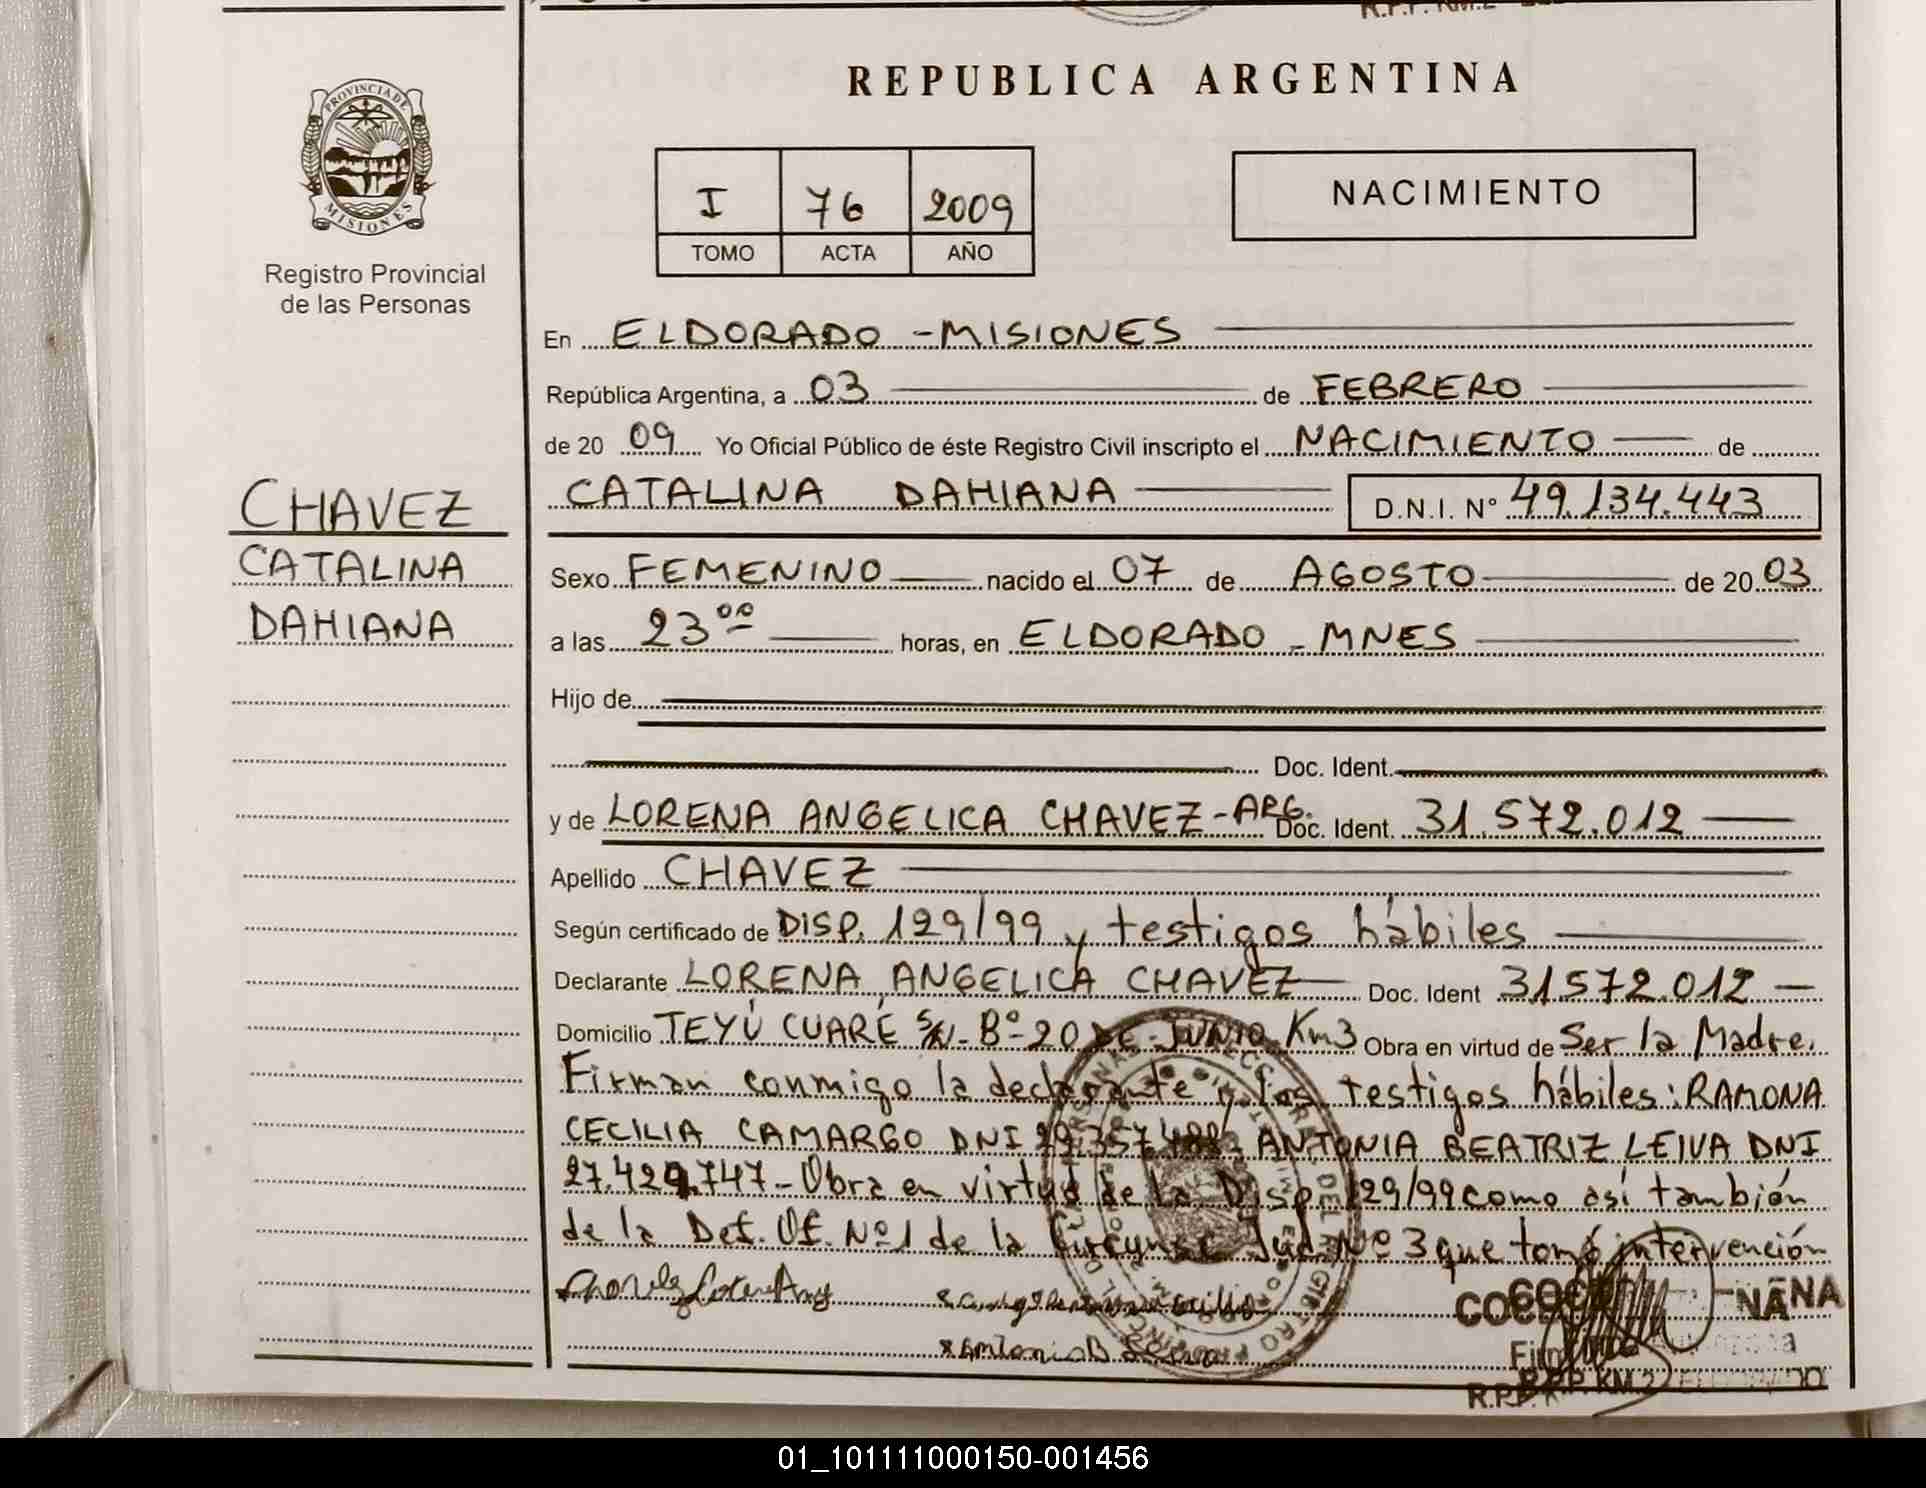 REPUBLICA ARGENTINA
PROVINCIA DE
MISIONES
Registro Provincial
de las Personas
I 76 2009
TOMO ACTA AÑO
NACIMIENTO
CHAVEZ
CATALINA
DAHIANA
En ELDORADO - MISIONES
República Argentina, a 03 de FEBRERO
de 20 09 Yo Oficial Público de éste Registro Civil inscripto el NACIMIENTO de
CATALINA DAHIANA D.N.I. N° 49.134.443
Sexo FEMENINO nacido el 07 de AGOSTO de 20 03
a las 23 00 horas, en ELDORADO - MNES
Hijo de
Doc. Ident.
y de LORENA ANGELICA CHAVEZ - ARG. Doc. Ident. 31.572.012
Apellido CHAVEZ
Según certificado de DISP. 129/99 y testigos hábiles
Declarante LORENA ANGELICA CHAVEZ Doc. Ident 31572.012
Domicilio TEYÚ CUARÉ S/N - Bº 20 DE JUNIO Km3 Obra en virtud de Ser la Madre.
Firman conmigo la declarante y los testigos hábiles: RAMONA
CECILIA CAMARGO DNI ANTONIA BEATRIZ LEIVA DNI
27.429.747 - Obra en virtud de la Disp. 129/99 como así también
de la Def. Of. Nº 1 de la Circunsc. Jud. Nº 3 que tomó intervención
01_101111000150-001456